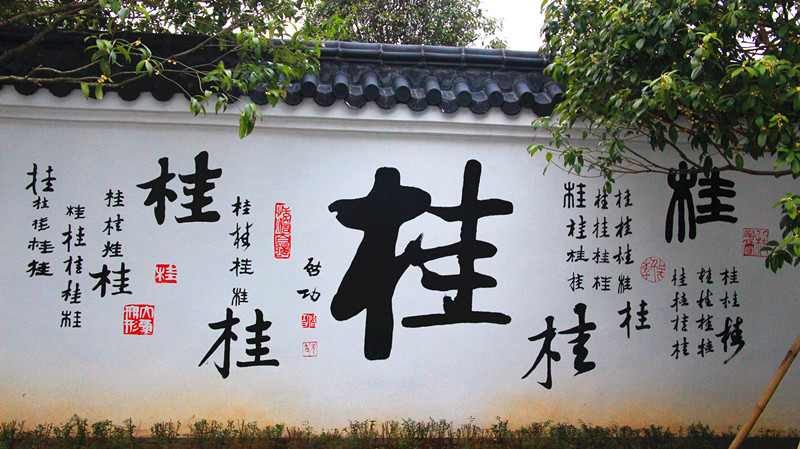 桂桂桂桂桂
桂桂桂桂桂
桂桂桂桂
桂
桂
大象無形
桂桂桂桂
桂
启功
桂
桂桂桂桂
桂桂桂桂
桂桂桂桂
桂
桂
桂
桂桂桂桂
桂桂桂桂
桂桂桂